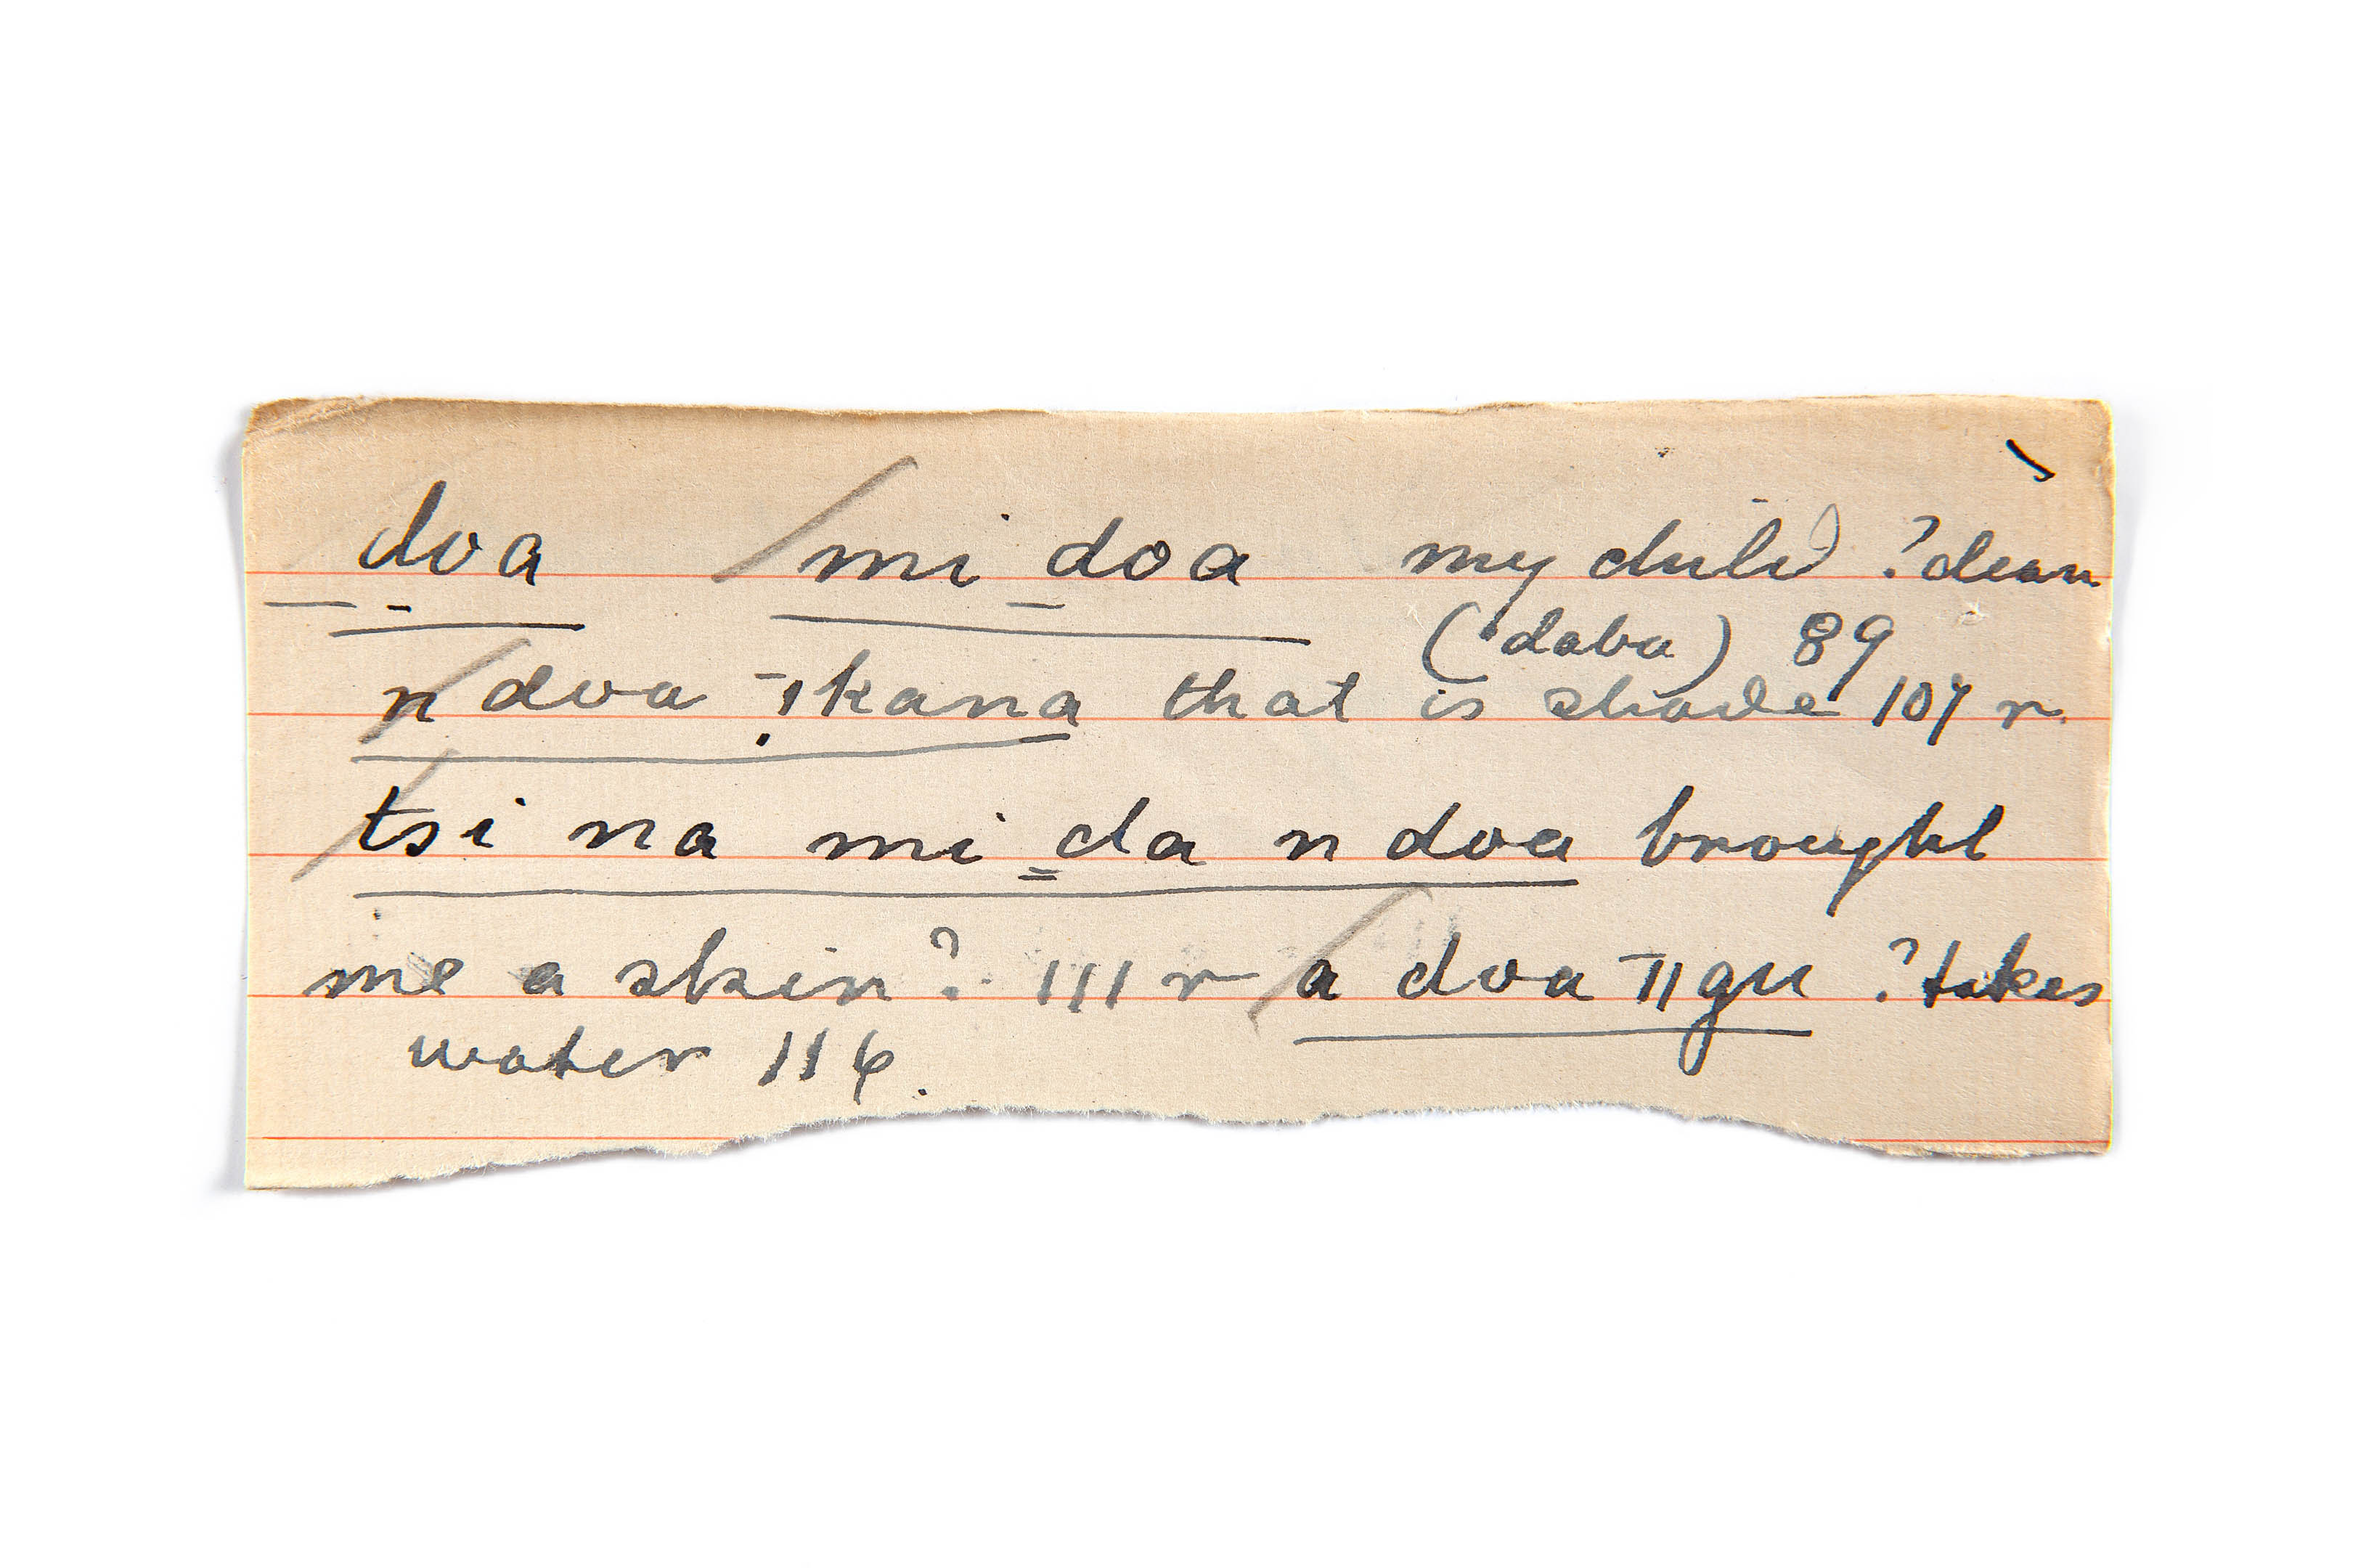 doa mi doa my child ? dear
(daba) 89
n doa ‾ıkana that is shade 107 r.
tsi na mi da n doa brought
me a skin? 111 r a doa ‾||gu ? takes
water 116.